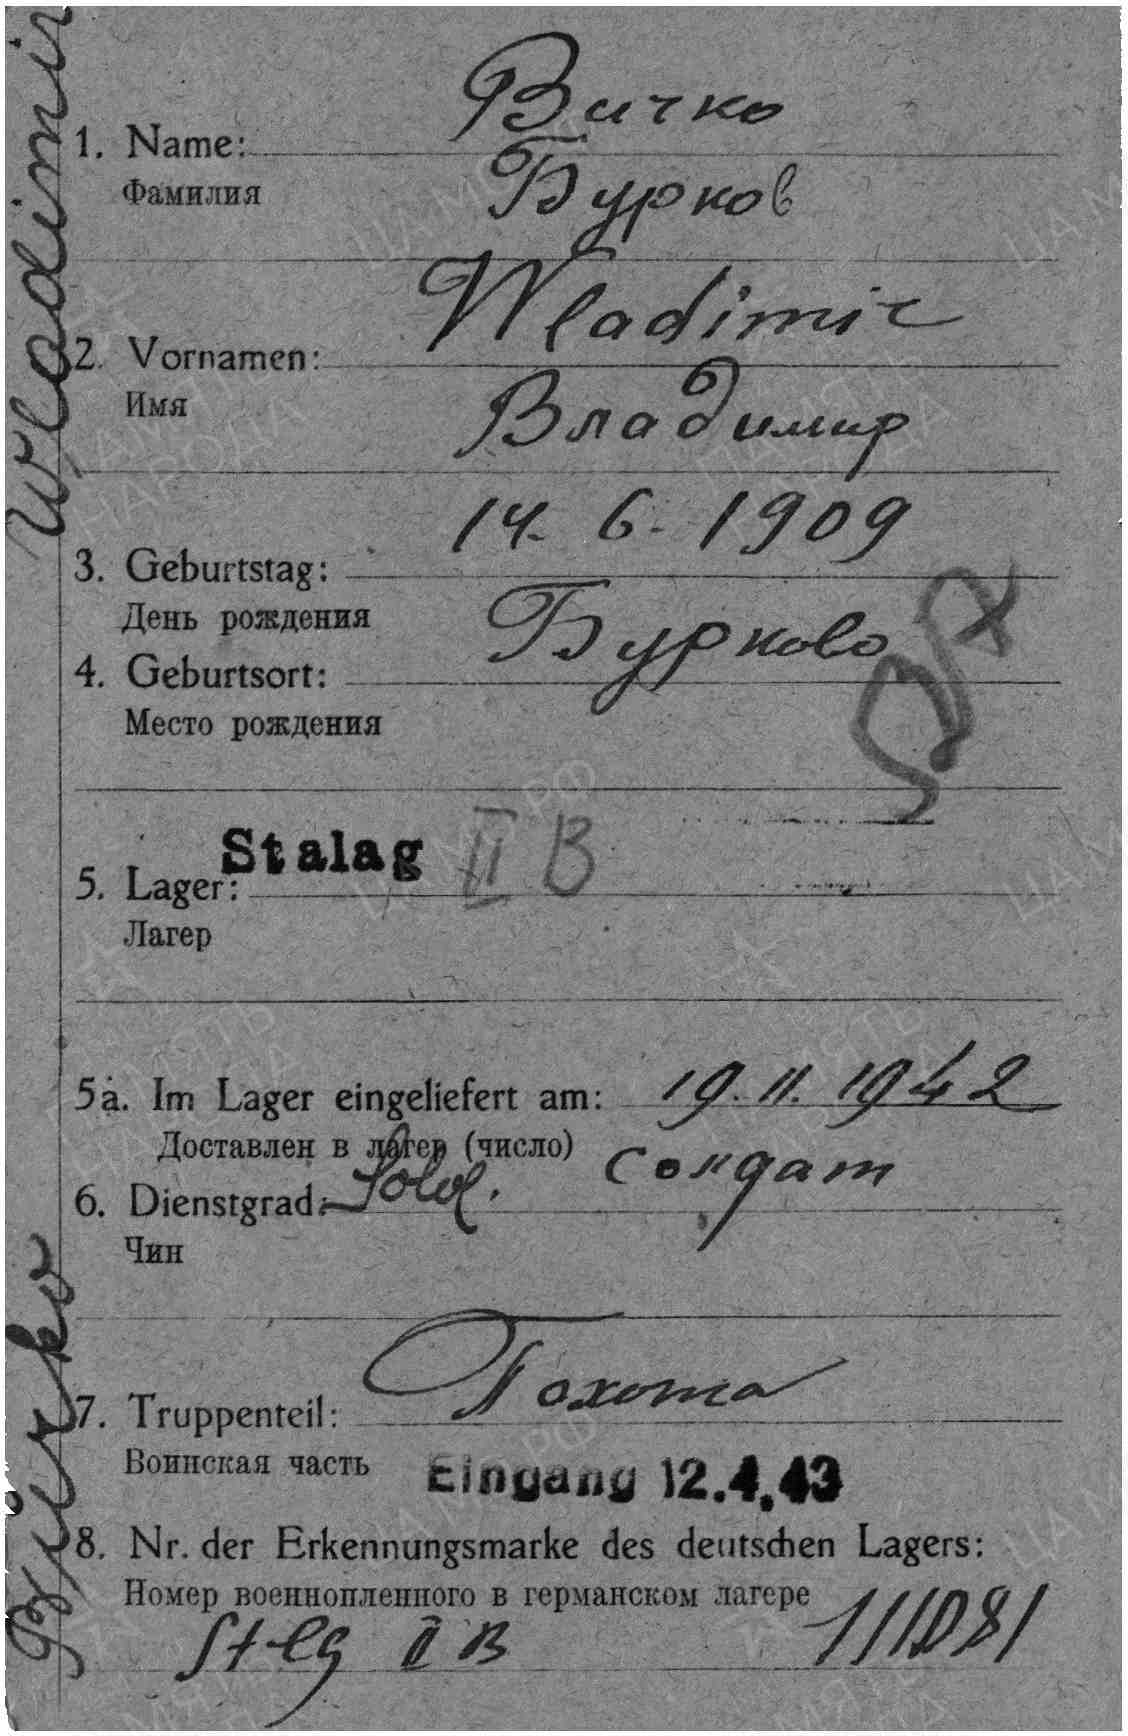 Wladimir
Вичко
1. Name:
Фамилия
Бурков
Wladimir
2. Vornamen:
Имя
Владимир
14. 6. 1909
3. Geburtstag:
День рождения
Бурково
4. Geburtsort:
Место рождения
Stalag II B
5. Lager:
Лагер
5a. Im Lager eingeliefert am: 19. 11. 1942
Доставлен в лагер (число)
солдат
6. Dienstgrad: Sold.
Чин
Похота
7. Truppenteil:
Воинская часть
Eingang 12.4.43
8. Nr. der Erkennungsmarke des deutschen Lagers:
Номер военнопленного в германском лагере
Stlg II B
ЦАМО РФ
ПАМЯТЬ НАРОДА